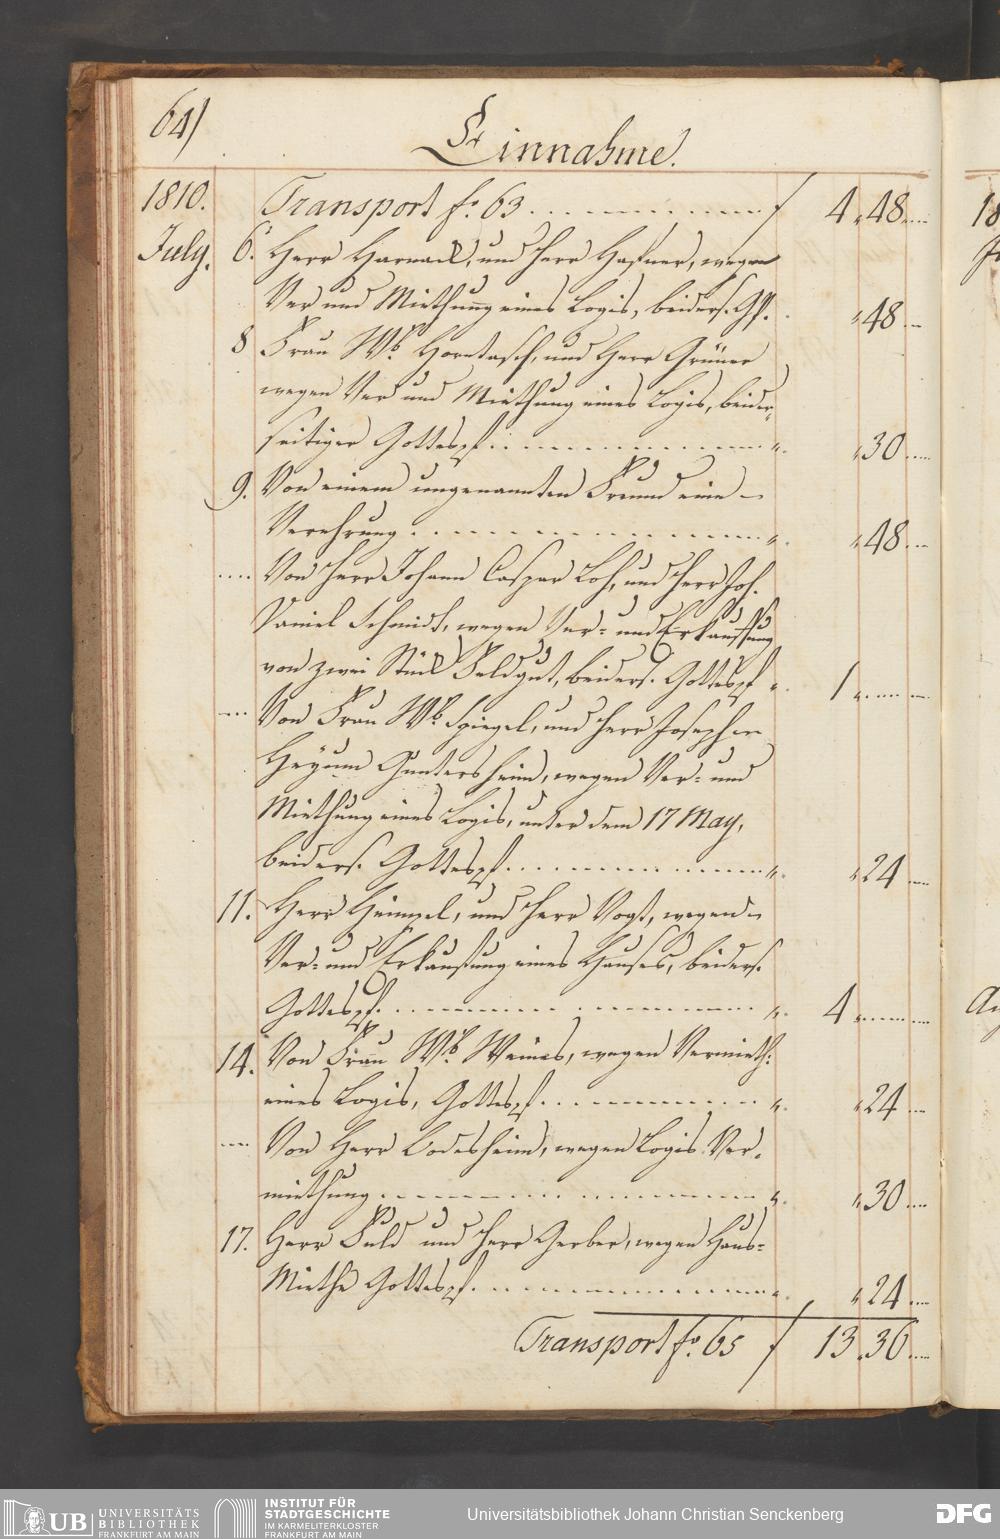 64)
Einnahme.
1810. Transport fo. 63 . . . . . . . . f 4 „ 48 . . .
July. 6. Herr Harnack, und Herr Hafner, wegen
Ver und Miethung eines Logis, beiders. Gpf. . „ 48 . .
8 Frau Wb. und Herr Grüner
wegen Ver und Miethung eines Logis, beider-
seitiger Gottespf. . . . . . . . . „ . „ 30 . . .
9. Von einem ungenannten Freund eine
Verehrung . . . . . . . . „ . „ 48 . . .
. . . . Von Herr Johann Caspar Loh, und Herr Joh.
Daniel Schmidt, wegen Ver- und Erkauffung
von zwei Stück Feldgut, beiders. Gottespf „ . 1 „ . . . .
. . . Von Frau Wb. Spiegel, und Herr Joseph
Heyum Guntersheim, wegen Ver- und
Miethung eines Logis, unter dem 17 May,
beiders. Gottespf. . . . . . . . . „ . „ 24 . . .
11. Herr Heimpel, und Herr Vogt, wegen
Ver- und Erkaufung eines Hauses, beiders.
Gottespf. . . . . . . . . „ . 4 „ . . . .
14. Von Frau Wb. Weines, wegen Vermieth:
eines Logis, Gottespf. . . . . . . . „ . „ 24 . . .
. . . . Von Herr Bodesheim, wegen Logis Ver-
miethung . . . . . . . . „ . „ 30 . . .
17. Herr Fuld und Herr Gerber, wegen Haus-
Miethe Gottespf. . . . . . . . . „ . „ 24 . . .
Transport fo. 65 f 13 „ 36 . . .
18
UB UNIVERSITÄTS
BIBLIOTHEK
FRANKFURT AM MAIN
INSTITUT FÜR
STADTGESCHICHTE
IM KARMELITERKLOSTER
FRANKFURT AM MAIN
Universitätsbibliothek Johann Christian Senckenberg
DFG